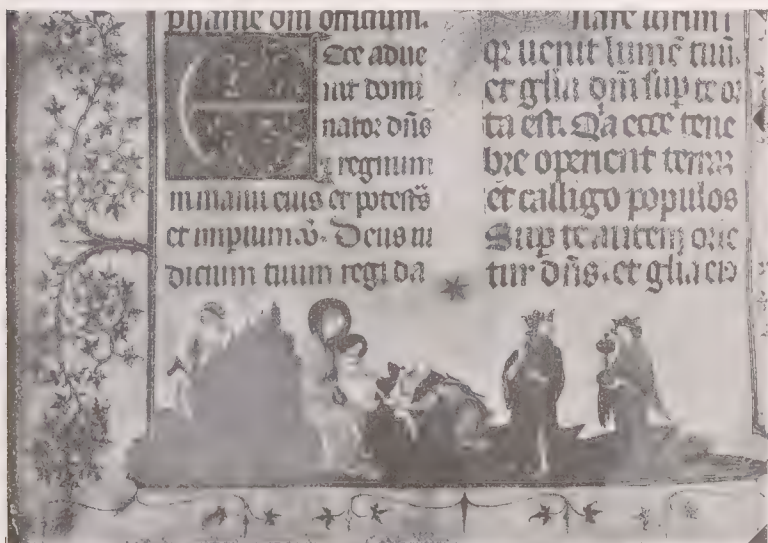 phanie om̄ officium.
Ecce adue
nit domi
nator dn̄s
regnum
in manu eius et potest̄s
et imptium. v̄. Deus iu
dicium tuum regi da
q̄ uenit lumē tuū.
et gl̄ia dn̄i sup te or
ta est. Qa ecce tene
bre operient terrā
et calligo populos
Sup te autem orie
tur dn̄s. et gl̄ia eiꝰ